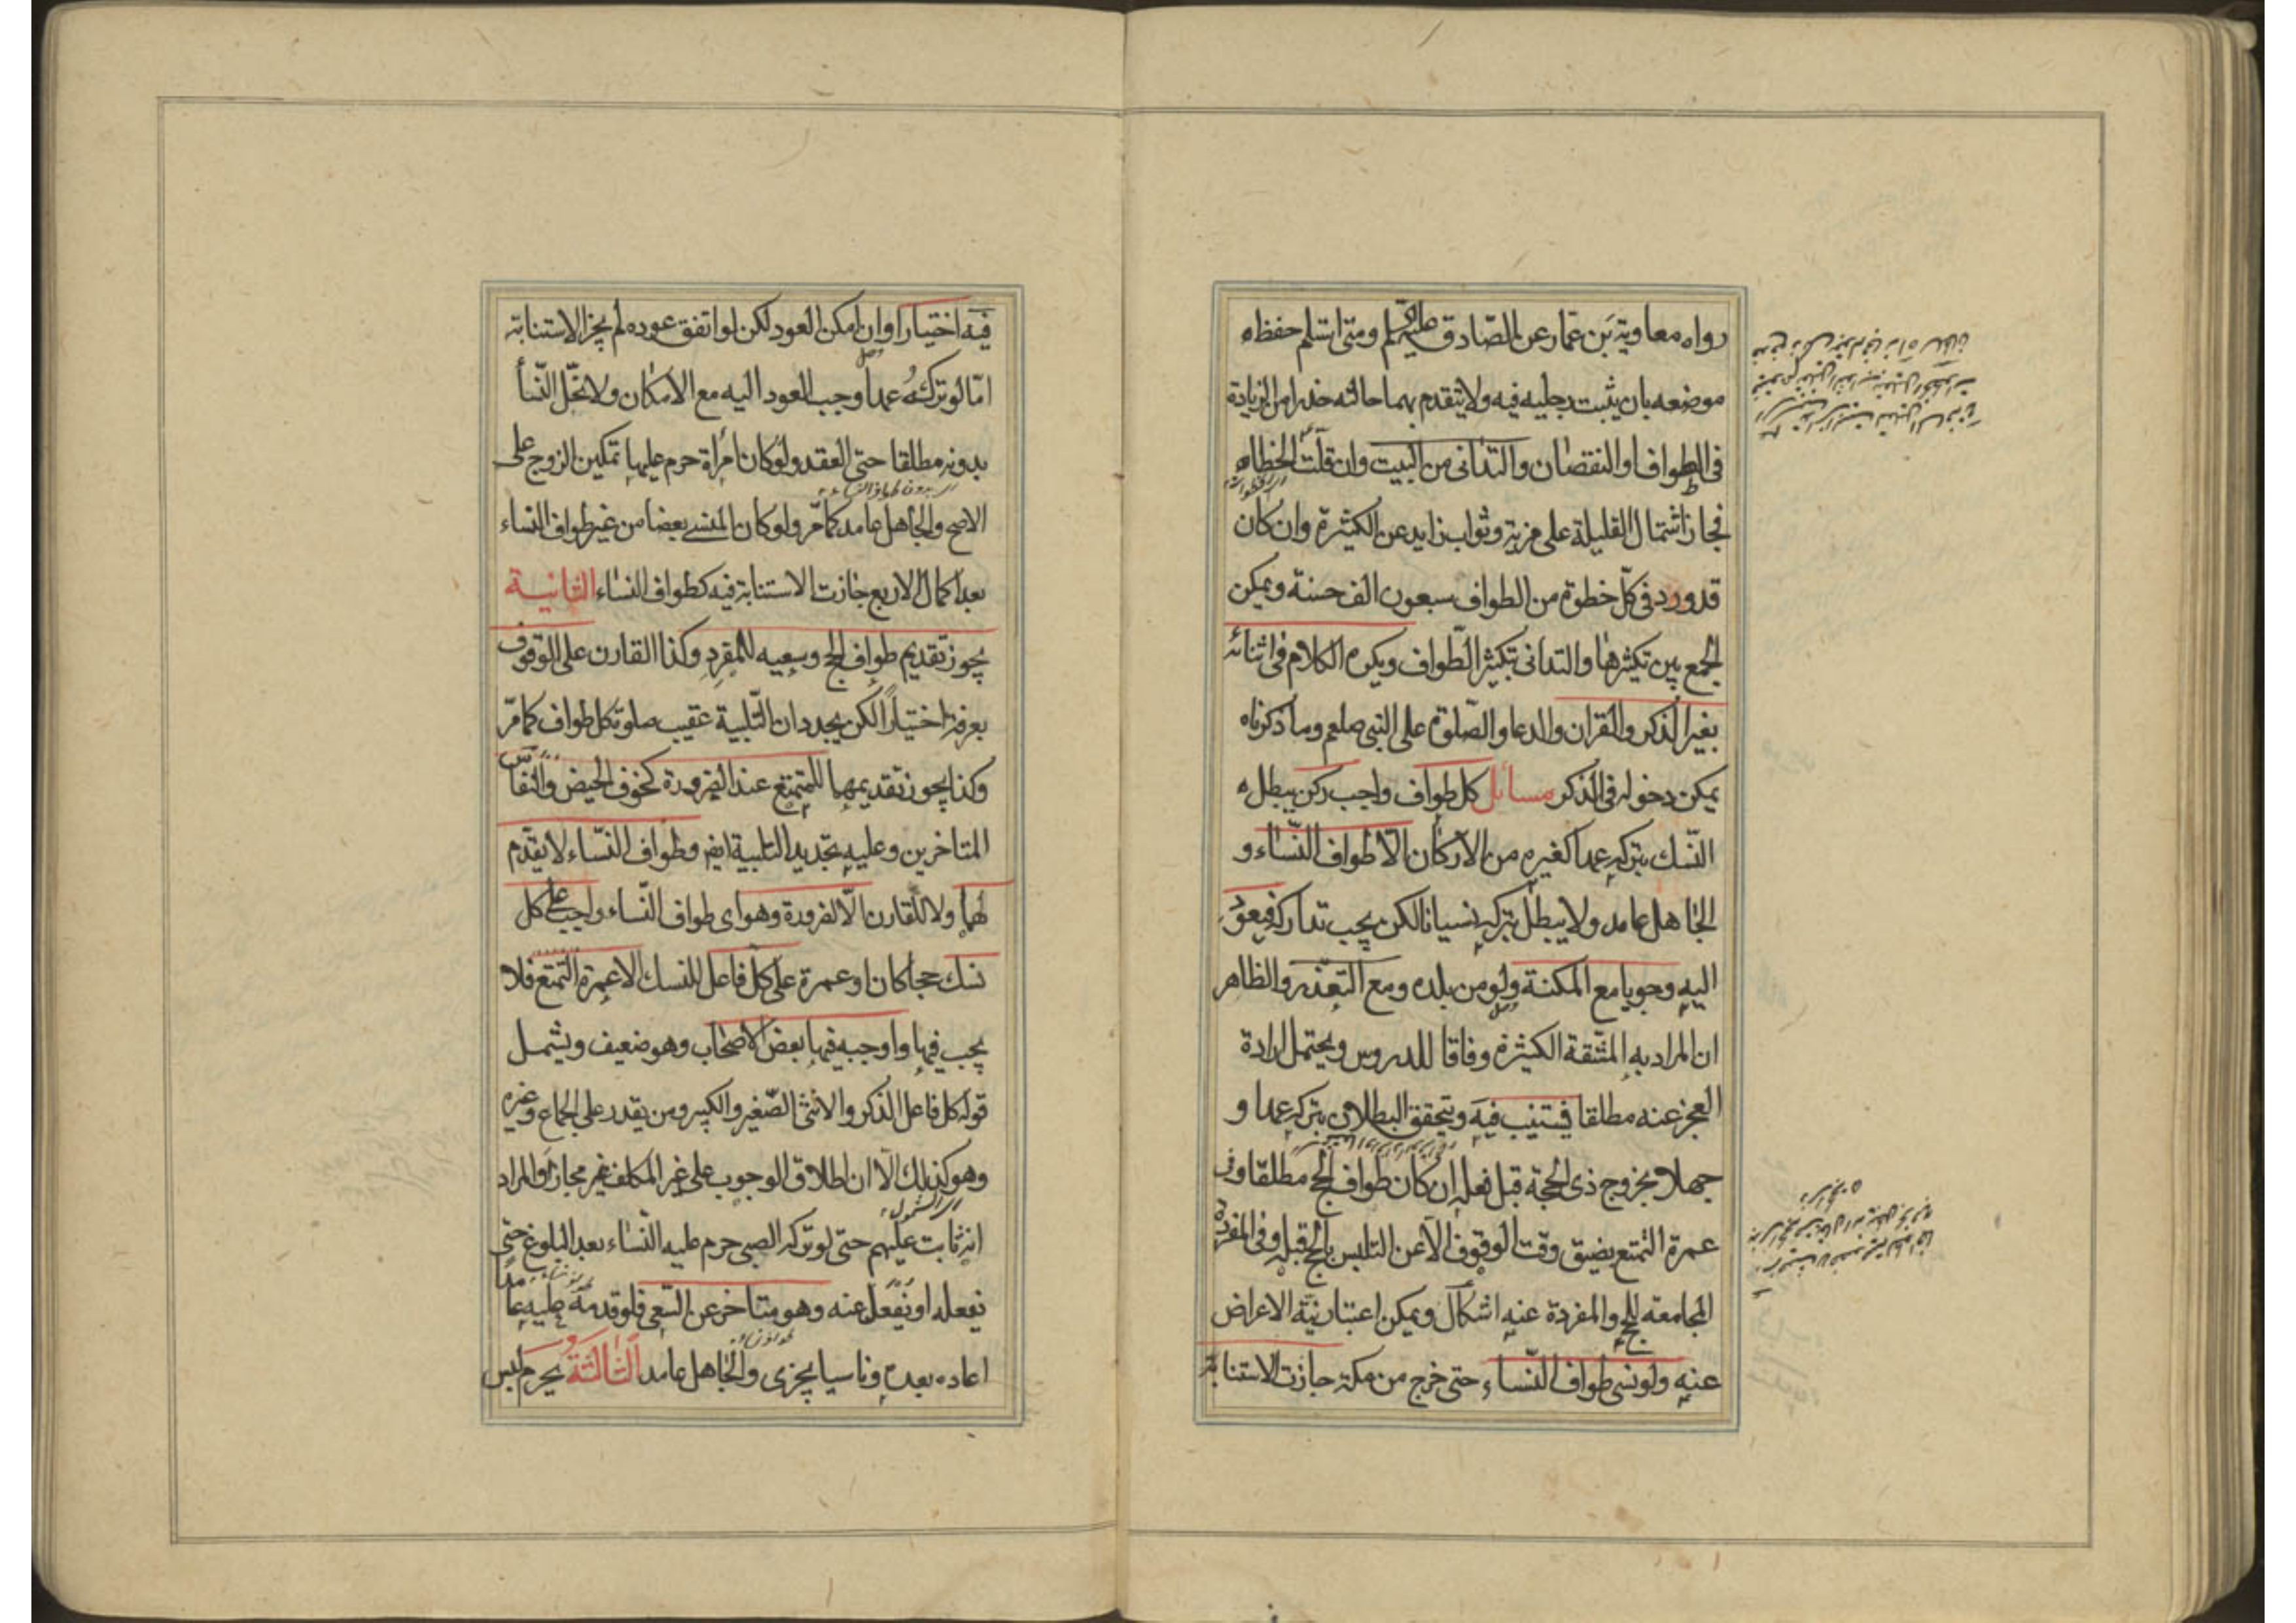 رواه معاوية بن عمار عن الصادق عليه السلم ومتى استلم حفظ
موضعه بان يثبت رجليه فيه ولا يتقدم بهما حالته حذرا من الزيادة
فى الطواف او النقصان والتدانى من البيت وان قلت الخطا
فجاز اشتمال القليلة على مزية وثواب زايد عن الكثيرة وان كان
قد ورد فى كل خطوة من الطواف سبعون الف حسنة ويمكن
الجمع بين تكثيرها والتدانى بتكثير الطواف ويكره الكلام فى اثنائه
بغير الذكر والقران والدعا والصلوة على النبى صلعم وما ذكرناه
يمكن دخوله فى الذكر مسائل كل طواف واجب ركن يبطل
النسك بتركه عمدا كغيره من الاركان الا طواف النساء و
الجاهل عامد ولا يبطل بتركه نسيانا لكن يجب تداركه فيعود
اليه وجوبا مع المكنة ولو من بلده ومع التعذر والظاهر
ان المراد به المشقة الكثيرة وفاقا للدروس ويحتمل ارادة
العجز عنه مطلقا فيستنيب فيه ويتحقق البطلان بتركه عمدا و
جهلا بخروج ذى الحجة قبل فعله ان كان طواف الحج مطلقا وفى
عمرة التمتع بضيق وقت الوقوف الا عن التلبس بالحج قبله وفى المفردة
المجامعة للحج والمفردة عنه اشكال ويمكن اعتبار نية الاعراض
عنه ولو نسى طواف النساء حتى خرج من مكة جازت الاستنابة
فيه اختيارا وان امكن العود لكن لو اتفق عوده لم يجز الاستنابة
اما لو تركه عمدا وجب العود اليه مع الامكان ولا تحل النسا
بدونه مطلقا حتى العقد ولو كان امراة حرم عليها تمكين الزوج على
اى بدون طواف النساء
الاصح والجاهل عامد كما مر ولو كان المنسى بعضا من غير طواف النساء
بعد اكمال الاربع جازت الاستنابة فيه كطواف النساء الثانية
يجوز تقديم طواف الحج وسعيه للمفرد وكذا القارن على الوقوف
بعرفة اختيارا لكن يجددان التلبية عقيب صلوة كل طواف كما مر
وكذا يجوز تقديمهما للمتمتع عند الضرورة كخوف الحيض والنفاس
المتاخرين وعليه تجديد التلبية ايضا وطواف النساء لا يقدم
لهما ولا للقارن الا لضرورة وهو اى طواف النساء واجب على كل
نسك حجا كان او عمرة على كل فاعل للنسك الا عمرة التمتع فلا
يجب فيها واوجبه فيها بعض الاصحاب وهو ضعيف ويشمل
قوله كل فاعل الذكر والانثى الصغير والكبير ومن يقدر على الجماع وغيره
وهو كذلك الا ان اطلاق الوجوب على غير المكلف غير مجاز والمراد
انه ثابت عليهم حتى لو تركه الصبى حرم عليه النساء بعد البلوغ حتى
يفعله او يفعل عنه وهو متاخر عن السعى فلو قدمه عليه عامدا
اعاده بعده وناسيا يجزى والجاهل عامد الثالثة يحرم لبس